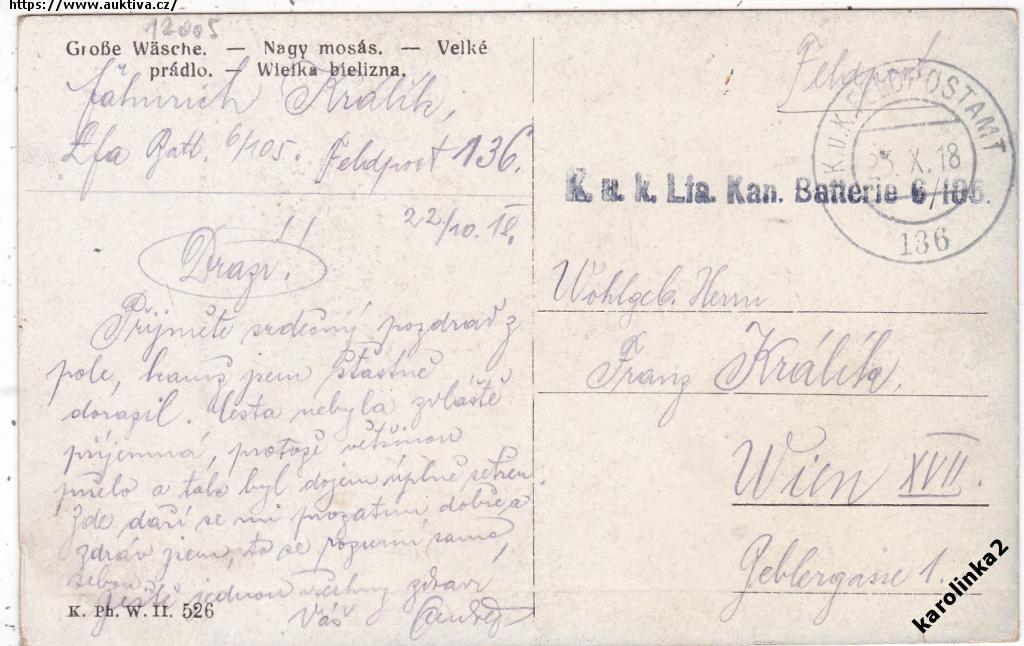 https://www.auktiva.cz/
12005
Große Wäsche. — Nagy mosás. — Velké
prádlo. — Wielka bielizna.
Fähnrich Králík,
Lfa Batt. 6/105. Feldpost 136.
22/10. 18.
Drazí!
Přijměte srdečný pozdrav z
pole, kamž jsem šťastně
dorazil. Cesta nebyla zvláště
příjemná, protože většinou
pršelo a tak byl dojem úplně setřen
Zde daří se mi prozatim dobře a
zdráv jsem, to se rozumí samo
sebou.
Ještě jednou všechny zdraví
Váš
K. Ph. W. II. 526
Feldpost
K. u. K. FELDPOSTAMT
23. X. 18
136
K. u. k. Lfa. Kan. Batterie 6/105.
Wohlgeb. Herrn
Franz Králík.
Wien XVII.
Geblergasse 1.
karolinka2